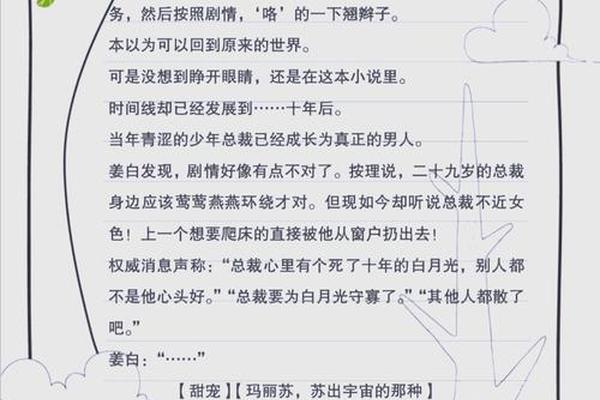 务，然后按照剧情，‘咯’的一下翘辫子。
本以为可以回到原来的世界。
可是没想到睁开眼睛，还是在这本小说里。
时间线却已经发展到……十年后。
当年青涩的少年总裁已经成长为真正的男人。
姜白发现，剧情好像有点不对了。按理说，二十九岁的总裁
身边应该莺莺燕燕环绕才对。但现如今却听说总裁不近女
色！上一个想要爬床的直接被他从窗户扔出去！
权威消息声称：“总裁心里有个死了十年的白月光，别人都
不是他心头好。”“总裁要为白月光守寡了。”“其他人都散了
吧。”
姜白：“……”
【甜宠】【玛丽苏，苏出宇宙的那种】